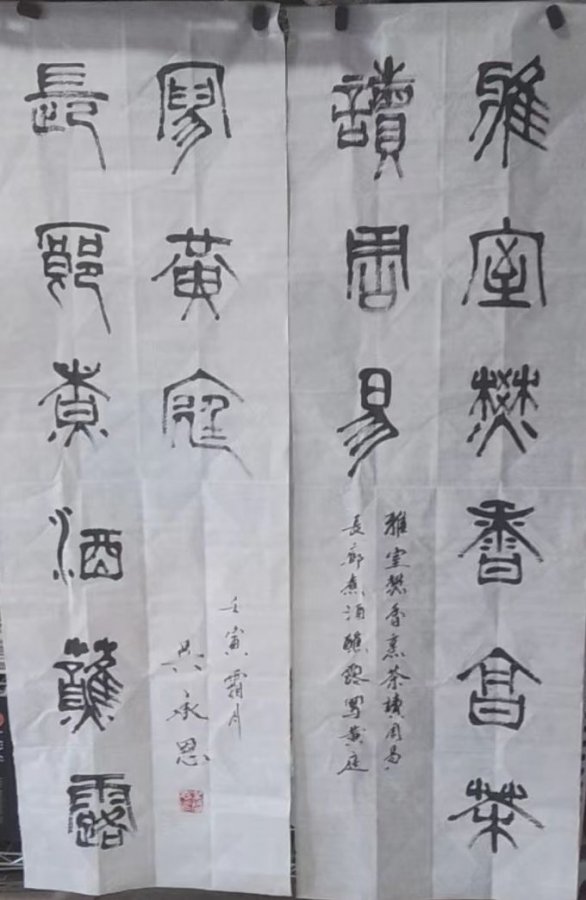 雅室焚香烹茶
讀周易
雅室焚香烹茶讀周易
長廊煮酒蘸露寫黃庭
長廊煮酒蘸露
寫黃庭
壬寅霜月
吳承恩